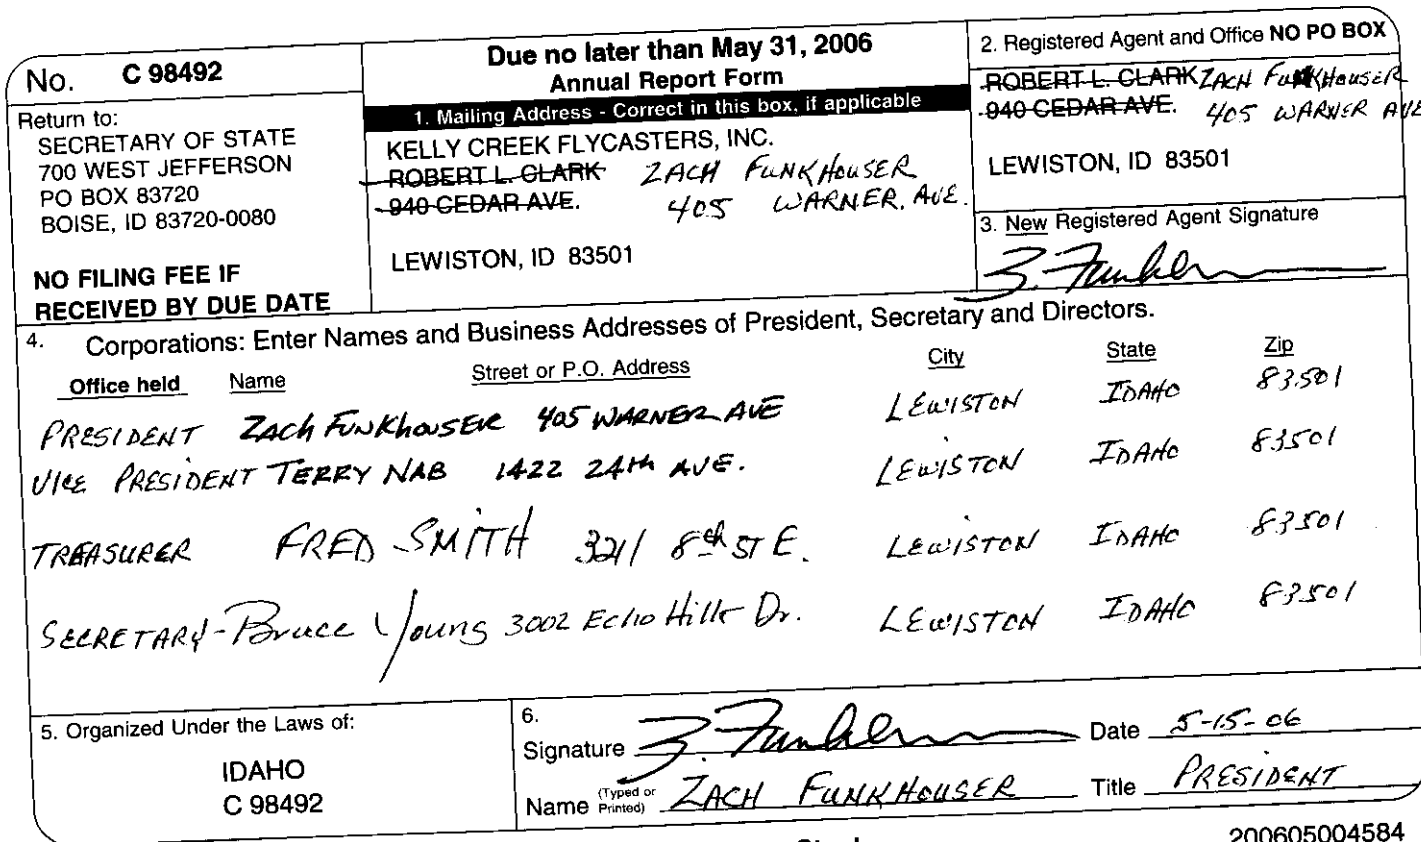 No. C 98492
Return to:
SECRETARY OF STATE
700 WEST JEFFERSON
PO BOX 83720
BOISE, ID 83720-0080
NO FILING FEE IF
RECEIVED BY DUE DATE
Due no later than May 31, 2006
Annual Report Form
1. Mailing Address - Correct in this box, if applicable
KELLY CREEK FLYCASTERS, INC.
ROBERT L. CLARK ZACH FUNKHOUSER
940 CEDAR AVE. 405 WARNER. AVE.
LEWISTON, ID 83501
2. Registered Agent and Office NO PO BOX
ROBERT L. CLARK ZACH FUNKHOUSER
940 CEDAR AVE. 405 WARNER AVE
LEWISTON, ID 83501
3. New Registered Agent Signature
4. Corporations: Enter Names and Business Addresses of President, Secretary and Directors.
Office held Name Street or P.O. Address City State Zip
PRESIDENT ZACH FUNKHOUSER 405 WARNER AVE LEWISTON IDAHO 83501
VICE PRESIDENT TERRY NAB 1422 24th AVE. LEWISTON IDAHO 83501
TREASURER FRED SMITH 3211 8th ST E. LEWISTON IDAHO 83501
SECRETARY - Bruce Young 3002 Echo Hills Dr. LEWISTON IDAHO 83501
5. Organized Under the Laws of:
IDAHO
C 98492
6.
Signature Z. Funkhouser Date 5-15-06
Name (Typed or Printed) ZACH FUNKHOUSER Title PRESIDENT
200605004584